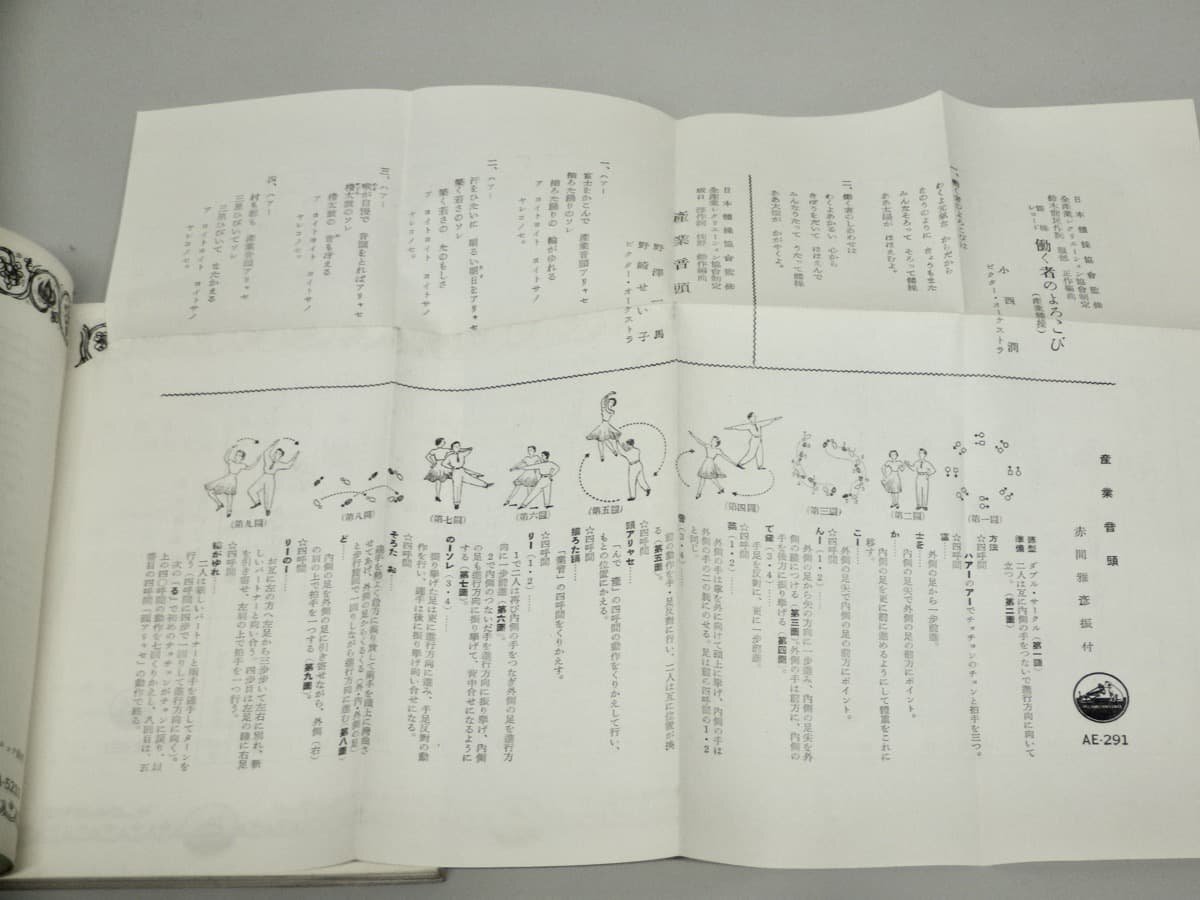 日本體操協會監修
全産業レクリエーション協會制定
働く者のよろこび
(産業體操)
小西潤
ビクター・オーケストラ
一、働く者のよろこびは
わくよ元氣が からだから
きょうもまた
みんなそろって よろって體操
ああ太陽が ほほえむよ。
二、働く者のしあわせは
わくよあかるい 心から
きぼうをだいて ほほえんで
みんなうたって うたって體操
ああ大空が かがやくよ。
日本體操協會監修
全産業レクリエーション協會制定
産業音頭
野澤一馬
野崎せい子
ビクター・オーケストラ
一、ハアー
富士をかこんで 産業音頭アリャセ
揃ろた踊りのソレ
揃ろた踊りの 輪がゆれる
ア ヨイトヨイト ヨイトサノ
ヤレコノセ。
二、ハアー
汗をひたいに 明るい明日をアリャセ
築く若さのソレ
築く若さの たのもしさ
ア ヨイトヨイト ヨイトサノ
ヤレコノセ。
三、ハアー
喉が自慢で 音頭をとればアリャセ
櫓太鼓のソレ
櫓太鼓の 音も冴える
ア ヨイトヨイト ヨイトサノ
ヤレコノセ。
四、ハアー
村も都も 産業音頭アリャセ
三里ひびいてソレ
三里ひびいて せたかえる
ア ヨイトヨイト ヨイトサノ
ヤレコノセ。
産業音頭
赤間雅彦振付
AE-291
(第一圖)
(第二圖)
(第三圖)
(第四圖)
(第五圖)
(第六圖)
(第七圖)
(第八圖)
(第九圖)
隊型 ダブル・サークル(第一圖)
準備 二人は互に内側の手をつないで進行方向に向いて
立つ。(第二圖)
方法
☆四呼間
ハアーのアーでチョチョンのチョンと拍手を三つ。
☆四呼間
富……
外側の足から一歩前進。
士を……
内側の足矢で外側の足の前方にポイント。
か……
内側の足を更に前に進めるようにして體重をこれに
移す。
こー……
外側の足矢で内側の足の前方にポイント。
☆四呼間
んー(1・2)……
外側の足から矢の方向に一歩進み、内側の足矢を外
側の踵につける(第三圖)。外側の手は前方に、内側の
手を後方に振り擧げる(第四圖)。
て産(3・4)……
手足を反對に、更に一歩前進。
☆四呼間
業(1・2)……
外側の手は掌を外に向けて頭上に擧げ、内側の手は
外側の手の二の腕にのせる。足は前ら四呼間の1・2
と同じ。
音(3・4)……
前の動作を手・足反對に行い、二人は互に位置が換
る(第五圖)。
☆四呼間
頭アリャセ……
「んで 産」の四呼間の動作をくりかえして行い、
もとの位置にかえる。
揃ろた踊……
「業音」の四呼間をくりかえす。
☆四呼間
りー(1・2)……
1で二人は再び内側の手をつなぎ外側の足を進行方
向に一歩前進(第六圖)。
2で内側のつないだ手を進行方向に振り擧げ、内側
の足も進行方向に振り擧げて、背中合せになるように
する(第七圖)。
のーソレ(3・4)……
振り擧げた足は更に進行方向に進み、手足反對の動
作を行い、連手は後に振り擧げ向い合せになる。
☆四呼間
そろた お……
連手を輕く後方に振り放して兩手を頭上に灣曲さ
せてあげ、外側の足からくるくる(外・内・外側の足)
と歩行旋囘で一囘りしながら進行方向に進む(第八圖)。
ど……
内側の足を外側の足に引き寄せながら、外側(右)
の肩の上で拍手を一つする(第九圖)。
☆四呼間
りーのー……
お互に左の方へ左足から三歩歩いて左右に別れ、新
しいパートナーと向い合う。四歩目は左足の踵に右足
を引き寄せ、左肩の上で拍手を一つ行う。
☆四呼間
輪がゆれ……
二人は新しいパートナーと兩手を連手してターンを
行う(四呼間に四歩で一囘りして進行方向に向く)。
次の「る」で初めのチョチョンがチョンに戻り、以
上の四〇呼間の動作を七囘くりかえし、八囘目は、五
番目の四呼間「頭アリャセ」の動作で終る。